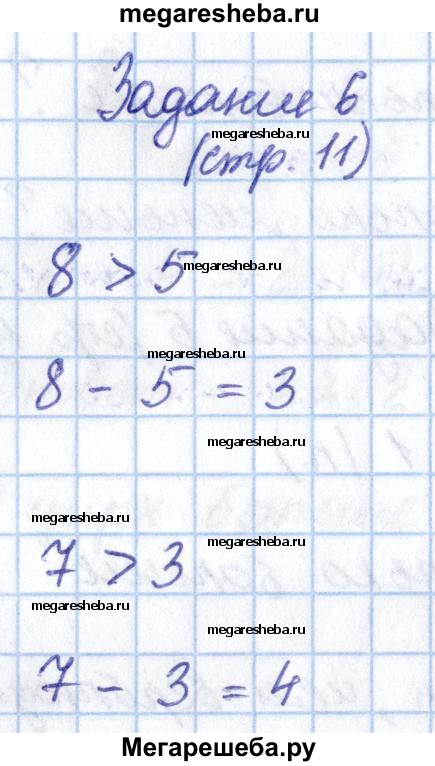 megaresheba.ru
Задание 6
megaresheba.ru
(стр. 11)
8 > 5
megaresheba.ru
megaresheba.ru
8 - 5 = 3
megaresheba.ru
megaresheba.ru
megaresheba.ru
7 > 3
megaresheba.ru
megaresheba.ru
7 - 3 = 4
Мегарешеба.ру